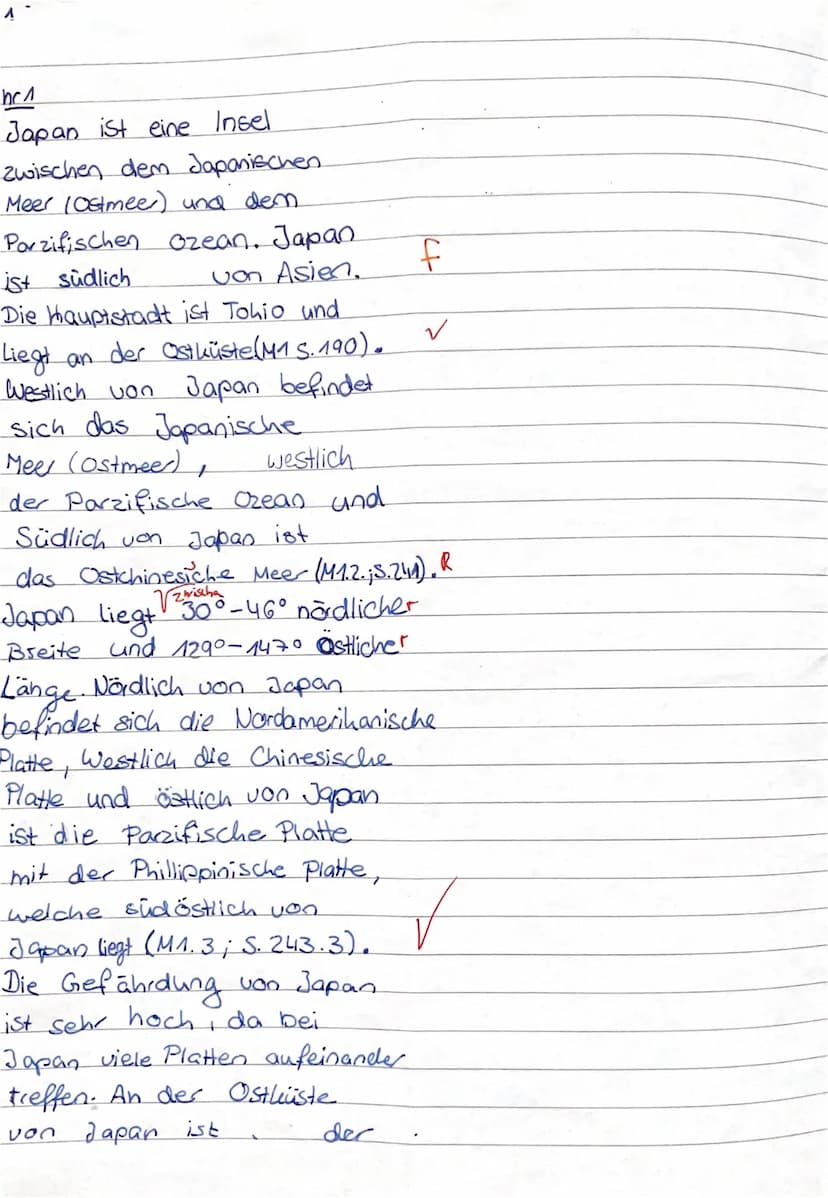 1
nr 1
Japan ist eine Insel
zwischen dem Japanischen
Meer (Ostmeer) und dem
Parzifischen Ozean. Japan
ist südlich von Asien. f
Die Hauptstadt ist Tokio und
Liegt an der Ostküste(M1 S.190). ✓
Westlich von Japan befindet
sich das Japanische
Meer (Ostmeer), westlich
der Parzifische Ozean und
Südlich von Japan ist
das Ostchinesiche Meer (M1.2.;S.241). R
Japan liegt zwischen 30°-46° nördlicher
Breite und 129°-147° Östlicher
Länge. Nördlich von Japan
befindet sich die Nordamerikanische
Platte, Westlich die Chinesische
Platte und östlich von Japan
ist die Parzifische Platte
mit der Phillippinische Platte,
welche südöstlich von
Japan liegt (M1.3; S. 243.3). ✓
Die Gefährdung von Japan
ist sehr hoch, da bei
Japan viele Platten aufeinander
treffen. An der Ostküste
von Japan ist der